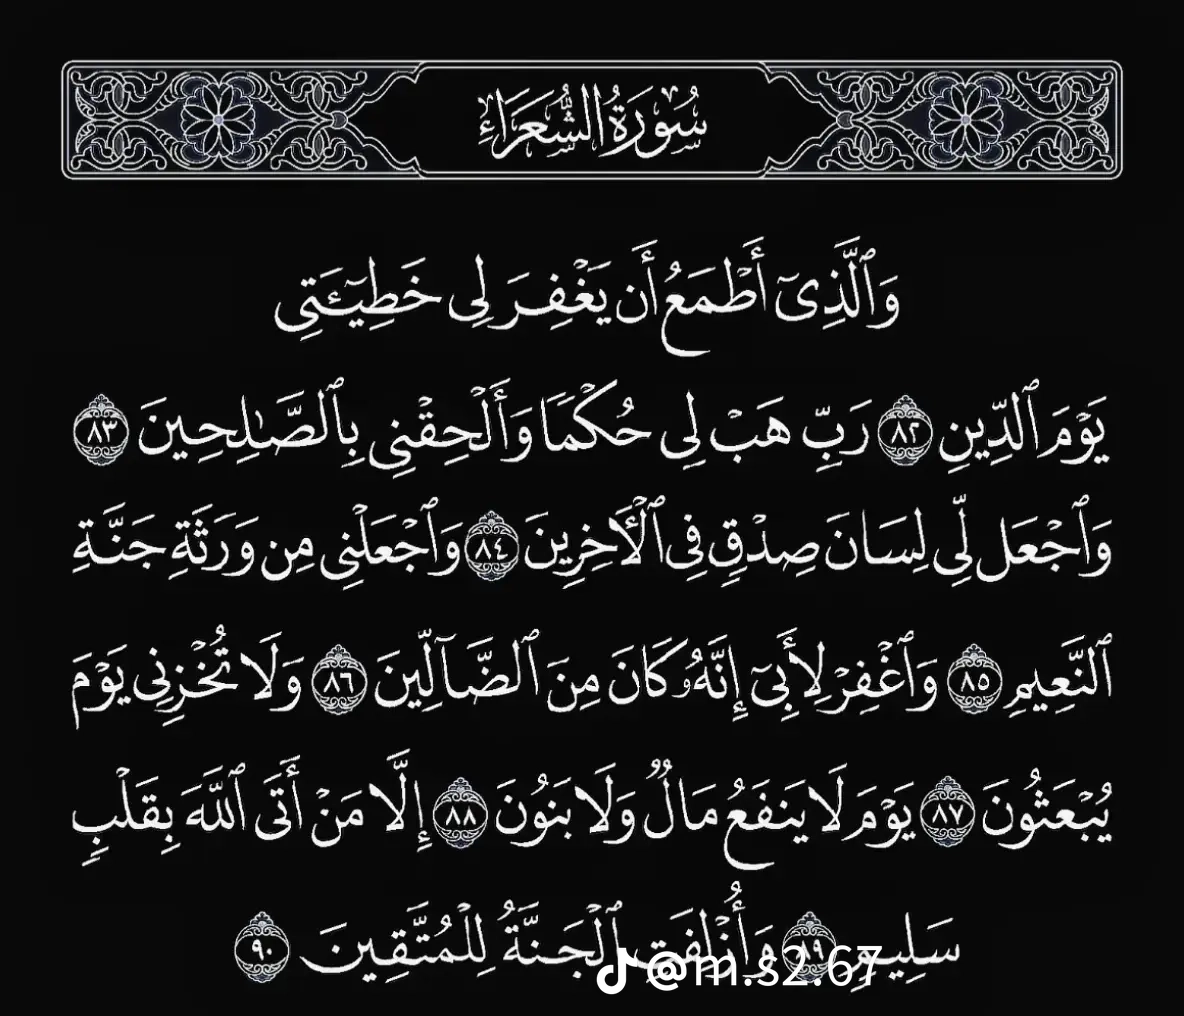 سُورَةُ الشُّعَرَاءِ
وَٱلَّذِىٓ أَطْمَعُ أَن يَغْفِرَ لِى خَطِيٓـَٔتِى
يَوْمَ ٱلدِّينِ ٨٢ رَبِّ هَبْ لِى حُكْمًا وَأَلْحِقْنِى بِٱلصَّـٰلِحِينَ ٨٣
وَٱجْعَل لِّى لِسَانَ صِدْقٍ فِى ٱلْـَٔاخِرِينَ ٨٤ وَٱجْعَلْنِى مِن وَرَثَةِ جَنَّةِ
ٱلنَّعِيمِ ٨٥ وَٱغْفِرْ لِأَبِىٓ إِنَّهُۥ كَانَ مِنَ ٱلضَّآلِّينَ ٨٦ وَلَا تُخْزِنِى يَوْمَ
يُبْعَثُونَ ٨٧ يَوْمَ لَا يَنفَعُ مَالٌ وَلَا بَنُونَ ٨٨ إِلَّا مَنْ أَتَى ٱللَّهَ بِقَلْبٍ
سَلِيمٍ ٨٩ وَأُزْلِفَتِ ٱلْجَنَّةُ لِلْمُتَّقِينَ ٩٠
@m.s2.67